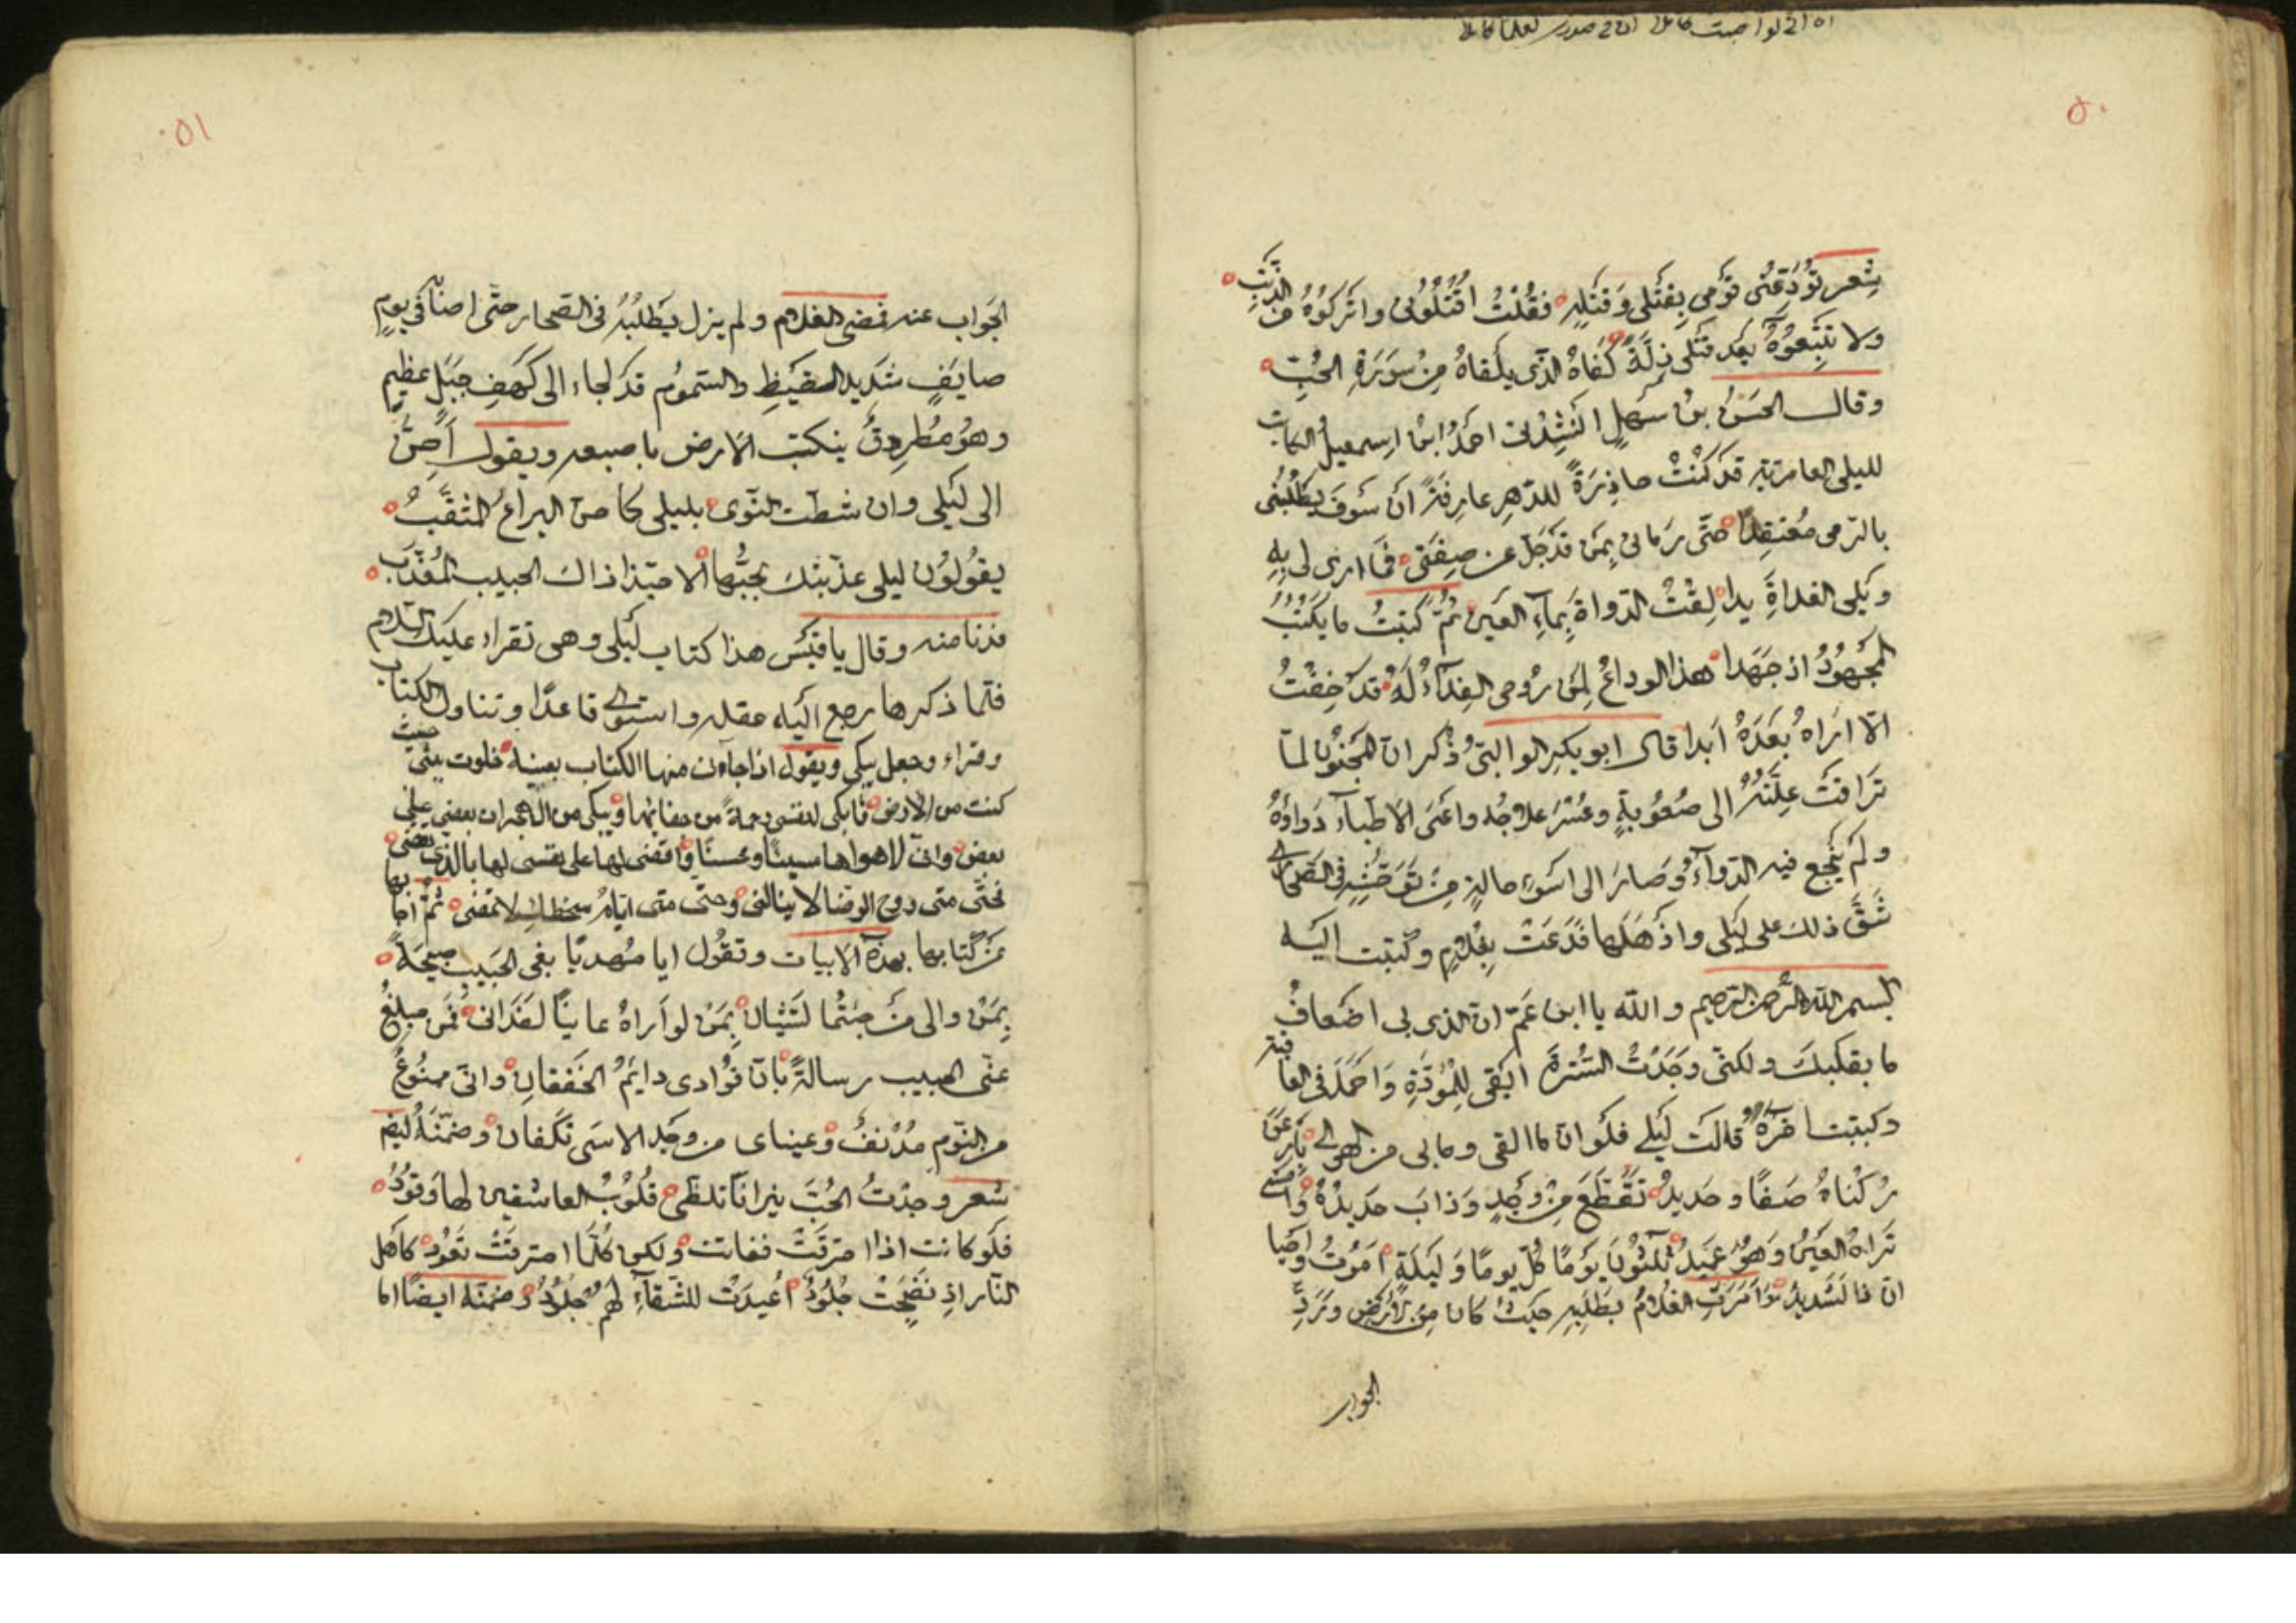 ٥٠
شعر توُدّعني قومي بقتلي وقتله فقلت اقتلوني واتركوه من الذنب
ولا تتبعوه بعد قتلي ذلّة كفاه الذي يلقاه من سورة الحبّ
وقال الحسن بن سهل انشدني احمد ابن اسمعيل الكاتب
لليلى العامرية قد كنت حاذرة للدهر عارفة ان سوف يطلبني
بالرمي معتقدا حتى رماني بمن قد جلّ عن صفتي فما ارى لي به
ويلي الغداة يدا لقت الدواة بماء العين ثم كتبت ما يكتب
المجهود اذ جهدا هذا الوداع لمن روحي الفداء له قد خفت
الّا اراه بعده ابدا قال ابو بكر الوالبي ذكر ان المجنون لما
ترافت علته الى صعوبة وعسر علاجه واعيى الاطبآء دوآؤه
ولم ينجع فيه الدوآء وصار الى اسوء حالة من توحّشه في الصحارى
شقّ ذلك على ليلى واذهلها فدعت بغلام وكتبت اليه
بسم الله الرحمن الرحيم والله يا ابن عمّ ان الذي بي اضعاف
ما بقلبك ولكني وجدت السترة ابقى للمودّة واحمد في العاقبة
وكتبت اخره قالت ليلى فلو ان ما القى وما بي من الهوى بارعن
ركناه صفًا وحديد تقطّع من وجد وذاب حديده وامسى
تراه العين وهو عميد ثلثون يومًا كل يومًا وليلة اموت واحيا
انّ ذا لشديد وامرت الغلام بطلبه حيث كان من الارض وتردّ
الجواب
٥١
الجواب عنه فمضى الغلام ولم يزل يطلبه في الصحارى حتى اصابه في يوم
صايف شديد القيظ والسموم قد لجاء الى كهف جبل عظيم
وهو مطرق ينكت الارض باصبعه ويقول أحِنّ
الى ليلى وان شطت النوى بليلى كما حنّ اليراع المثقّب
يقولون ليلى عذّبتك بحبّها الا حبّذا ذاك الحبيب المعذّب
فدنا منه وقال يا قيس هذا كتاب ليلى وهي تقراء عليك السلام
فلما ذكرها رجع اليه عقله واستوى قاعدًا وتناول الكتاب
وقراء وجعل يبكي ويقول اذا جاءن منها الكتاب بعينه خلوت ببيتي حيث
كنت من الارض فابكي لنفسي رحمة من جفائها ويبكي من الهجران بعضي على
بعض وانّي لاهواها مسيئًا ومحسنًا واقضي لها على نفسي لها بالذي تقضي
فحتّى متى روح الرضا لا ينالني وحتى متى ايام سخطك لا تمضي ثمّ اجابها
عن كتابها بهذه الابيات وتقول ايا مُهديًا نعي الحبيب صبيحة
بمن والى من جئتما لتشيان بمن لو اراه عانيًا لفداني فمن مبلغ
عنّي الحبيب رسالة بانّ فؤادي دايم الخفقان وانّي ممنوع
من النوم مدنف وعيناي من وجد الاسى تكفان وضمّنه ايضًا
شعر وجدت الحبّ نيرانًا تلظّى قلوب العاشقين لها وقود
فلو كانت اذا احترقت تفانت ولكن كلّما احترقت تعود كاهل
النار اذ نضجت جلود اعيدت للشقآء لهم جلود وضمنه ايضًا اما